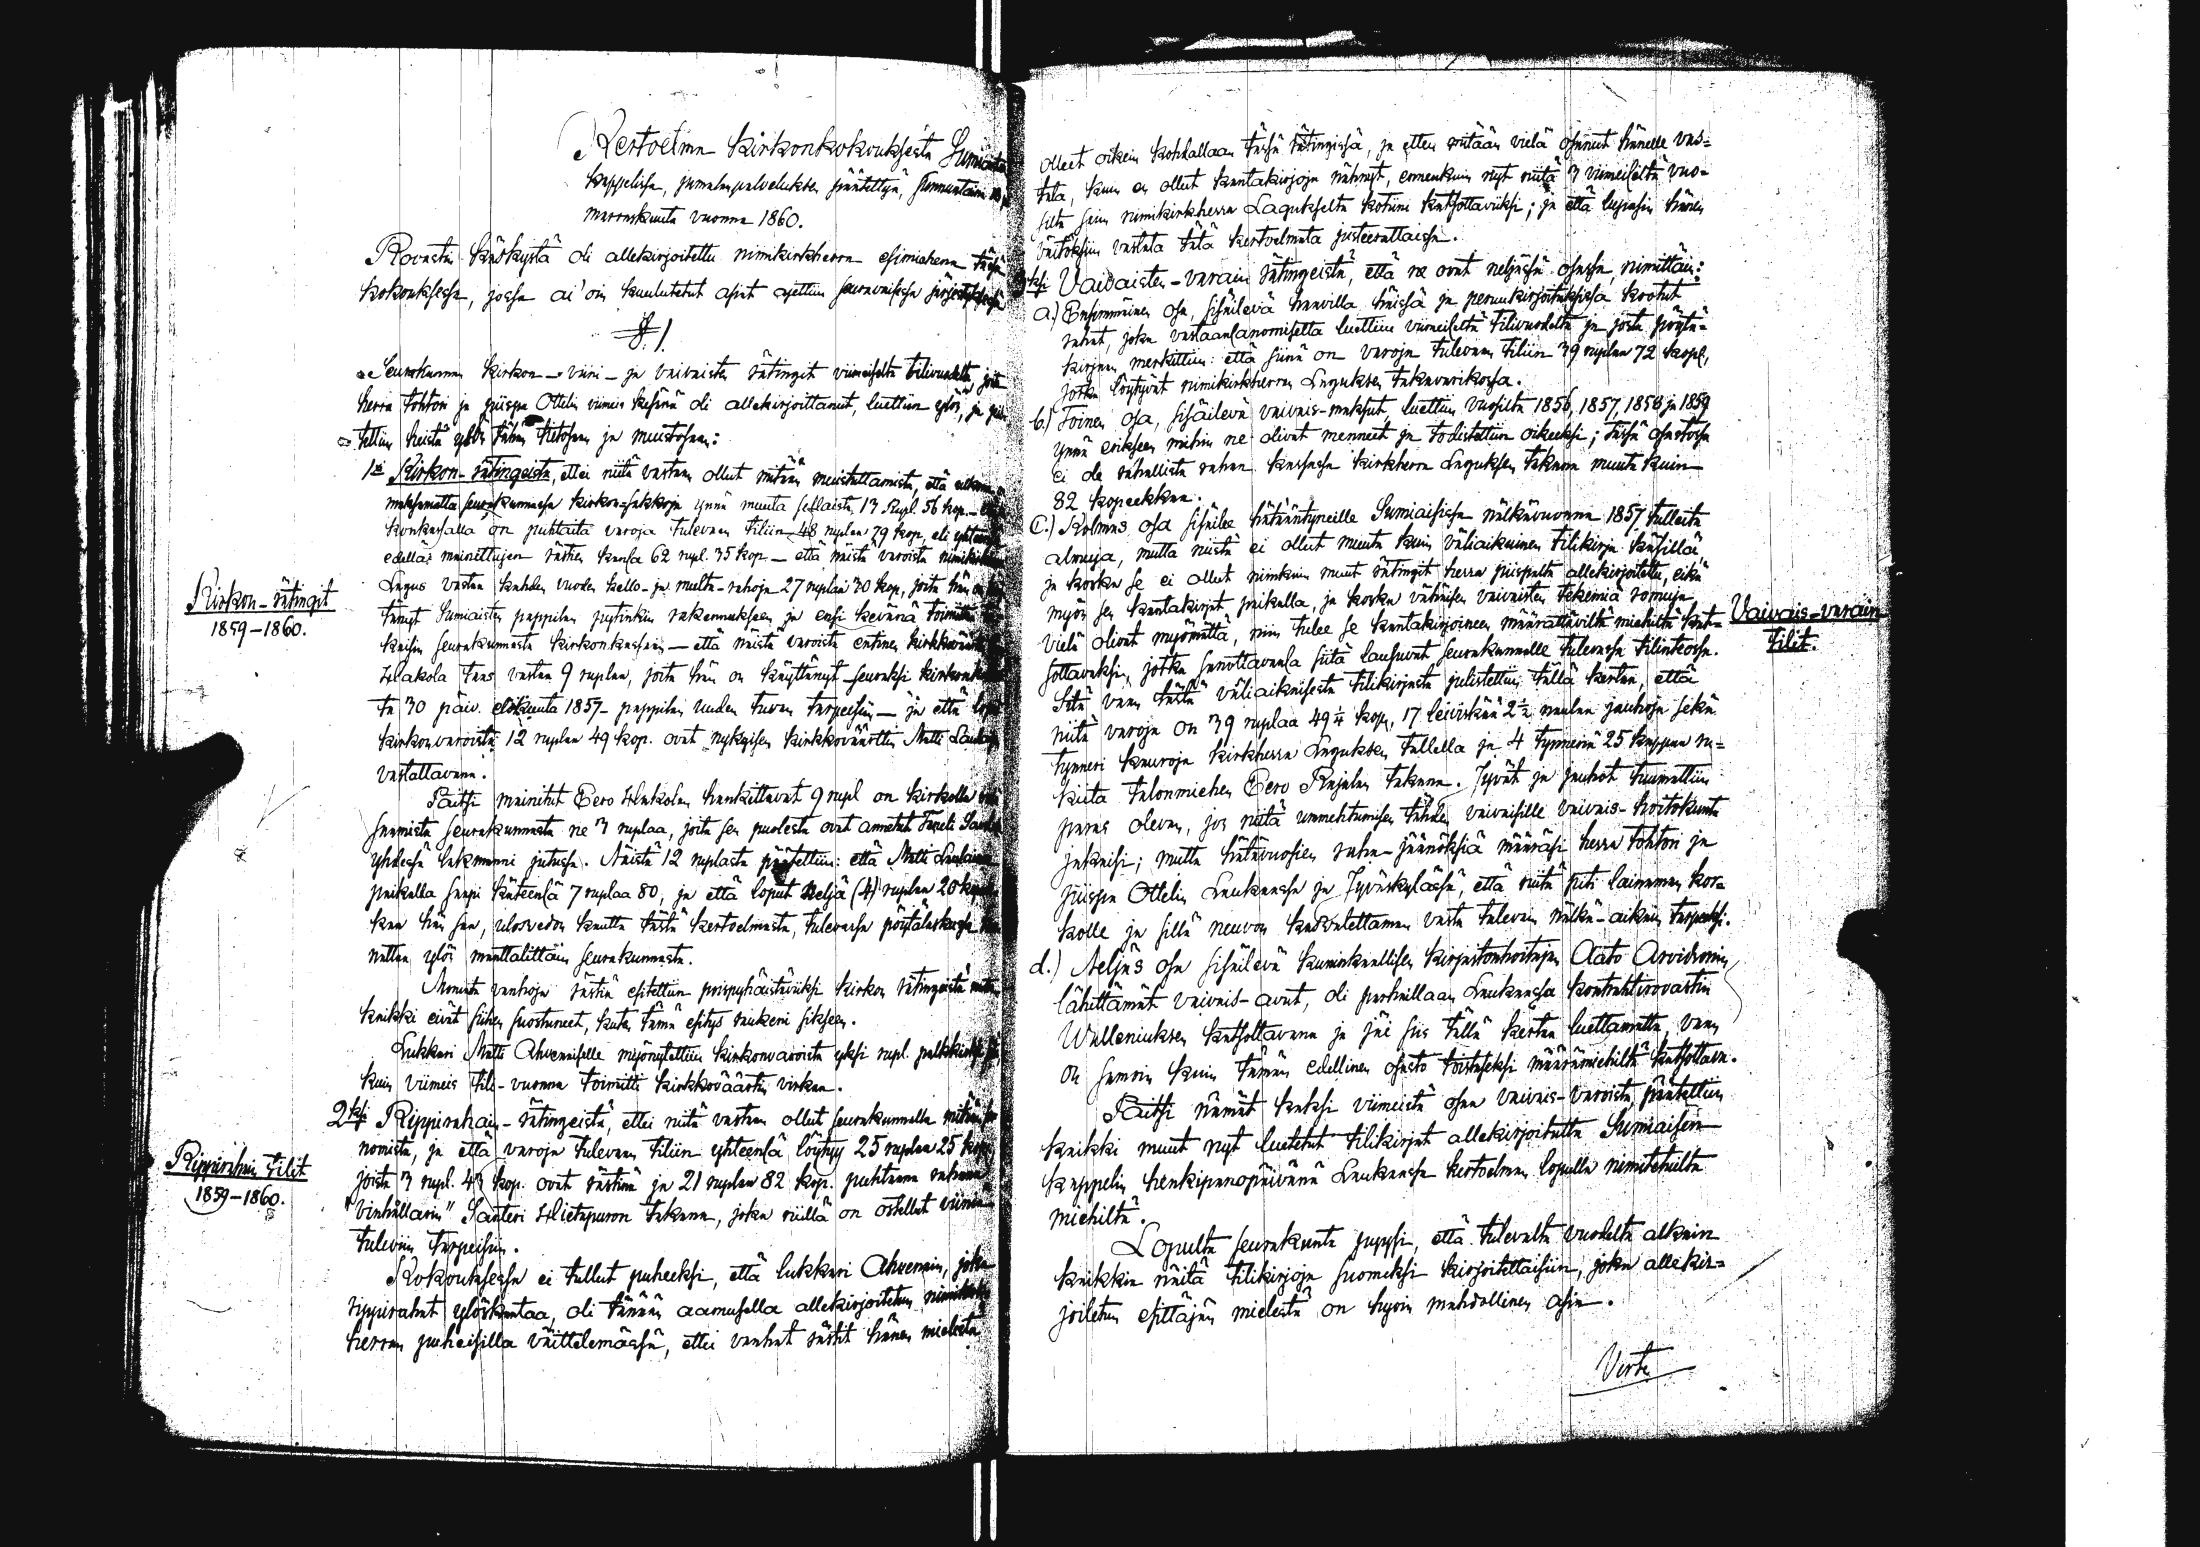 Kertoelma kirkonkokouksesta Sumiaisten
kappelissa, jumalanpalveluksen päätettyä, sunnuntaina
marraskuuta vuonna 1860.
Rovastin käskystä oli allekirjoitettu nimikirkkoherra esimiehenä tässä
kokouksessa, jossa ai'oin kuulutetut asiat ajettiin seuraavaisessa järjestyksessä
§ 1
Seurakunnan kirkon- viini- ja vaivaisten rätingit viimeiseltä tilivuodelta joita
herra tohtori ja piispa Ottelin viimeis kesänä oli allekirjoittanut, luettiin ylös, ja
tettiin heistä ylös tähän tiedoksen ja muistoksen:
1ksi Kirkon-rätingeistä, ettei niitä vastaan ollut mitään muistuttamista, että
maksamatta seurakunnassa kirkonsakkoja ynnä muuta sellaista, 13 Rupl. 56 kop. —
konkassalla on puhtaita varoja tulevaan tiliin 48 ruplaa 79 kop, eli yhteensä
edellä mainittujen rästien kanssa 62 rupl. 35 kop — että näistä varoista nimikirkkoherra
Lagus vastaa kahden vuoden kello- ja multa-rahoja 27 ruplaa 30 kop, joita hän on
tänyt Sumiaisten pappilan pytinkiin rakennukseen ja ensi keväänä toimittaa
kaisin seurakunnasta kirkonkassaan — että näistä varoista entinen kirkkoväärti
Hakola taas vastaa 9 ruplaa, joita hän on käyttänyt seuraksi kirkonkokouk
ta 30 päiv. elokuuta 1857 pappilan uuden tuvan tarpeisin — ja että loput
kirkonvaroista 12 ruplaa 49 kop. ovat nykyisen kirkkoväärtin Matti
vastattavana.
Paitsi mainitut Eero Hakolan hankittavat 9 rupl on kirkolla
saamista seurakunnasta ne 3 ruplaa, joita sen puolesta ovat annetut
yhdessä lukmanni jutussa. Näistä 12 ruplasta päätettiin: että Matti
paikalla saapi käteensä 7 ruplaa 80, ja että loput neljä (4) ruplaa 20
kan hän saa, ulosvedon kautta tästä kertoelmasta, tulevassa pöytäläskussa
nattaa ylös manttalittain seurakunnasta.
Monta vanhoja rästiä esitettiin poispyhäistäväksi kirkon rätingeistä
kaikki eivät siihen suostuneet, kuten tämä esitys raukeni sikseen.
Lukkari Matti Ahveniselle myönnytettiin kirkonvaroista yksi rupl. palkkiota
kuin viimeis tili-vuonna toimitti kirkkoväärtin virkaa.
2ksi Rippirahain-rätingeistä, ettei niitä vastaan ollut seurakunnalla mitään
nomista, ja että varoja tulevaan tiliin yhteensä löytyy 25 ruplaa 25 kop
joista 3 rupl. 43 kop. ovat rästinä ja 21 ruplaa 82 kop. puhtaana rahana
"vinhällarin" Santeri Hietapuron takana, joka niillä on ostellut viiniä
tuleviin tarpeisin.
Kokouksessa ei tullut puheeksi, että lukkari Ahvenain, joka
rippirahat ylöskantaa, oli tänään aamusella allekirjoitetun nimikirkko
herran puheisilla väittelemässä, ettei vanhat rästit hänen mielestä
Kirkon-rätingit
1859–1860.
Rippirahain tilit
1859–1860.
olleet oikein kohdallaan tässä rätingissä, ja etten mitään vielä osannut hänelle vas=
tata, kun en ollut kantakirjoja nähnyt, ennenkuin nyt niitä 3 viimeiseltä vuo=
silta sain nimikirkkherra Lagukselta kotiini katsottaviksi; ja että lupasin hänen
väitöksiin vastata tätä kertoelmata justeerattaissa.
3ksi Vaivaisten-varain rätingeistä, että ne ovat neljässä osassa, nimittäin:
a.) Ensimmäinen osa, sisältävä haavilla häissä ja perunkirjoituksissa kootut
rahat, joka vastaansanomisetta luettiin viimeiseltä tilivuodelta ja josta pöytä=
kirjaan merkittiin: että siinä on varoja tulevaan tiliin 39 ruplaa 72 kopek,
jotka löytyvät nimikirkkherran Laguksen takavarikossa.
b.) Toinen osa, sisältävä vaivais-maksut, luettiin vuosilta 1856, 1857, 1858 ja 1859
ynnä erikseen mihin ne olivat menneet ja todistettiin oikeaksi; tässä osastossa
ei ole rahallista rahaa kassassa kirkherra Laguksen takana muuta kuin
82 kopeekkaa.
C.) Kolmas osa sisältää hätääntyneille Sumiaisissa nälkävuonna 1857 tulleita
almuja, mutta niistä ei ollut muuta kuin väliaikainen tilikirja käsillä,
ja koska se ei ollut niinkuin muut rätingit herra piispalta allekirjoitettu, eikä
myös sen kantakirjat paikalla, ja koska vähäisen vaivaisten tekemiä romuja
vielä olivat myömättä, niin tulee se kantakirjoineen määrättäviltä miehiltä kat=
sottavaksi, jotka sanottavansa siitä lausuvat seurakunnalle tulevassa tilinteossa.
Sitä vaan tästä väliaikaisesta tilikirjasta julistettiin tällä kertaa, että
niitä varoja on 39 ruplaa 49 1/4 kop, 17 leiviskää 2 1/2 naulaa jauhoja sekä
tynneri kauroja kirkherra Laguksen tallella ja 4 tynneriä 25 kappaa ru=
kiita talonmiehen Eero Rajalan takana. Jyvät ja jauhot tuumattiin
paras olevan, jos niitä ummehtumisen tähden vaivaisille vaivais-hoitokunta
jakaisi; mutta hätävuosien raha-jäännöksiä määräsi herra tohtori ja
piispa Ottelin Laukaassa ja Jyväskylässä, että niitä piti lainaaman kor=
kolle ja sillä neuvon kasvatettaman vasta tulevain nälkä-aikain tarpeeksi.
d.) Neljäs osa sisältävä kuninkaallisen kirjastonhoitajan Aato Arvidsonin
lähettämät vaivais-avut, oli parhaillaan Laukaassa kontrahtirovastin
Walleniuksen katsottavana ja jäi siis tällä kertaa luettamatta, vaan
on samoin kuin tämän edellinen osasto toistaiseksi määrämiehiltä katsottava.
Paitsi nämät kaksi viimeistä osaa vaivais-varoista, päätettiin
kaikki muut nyt luetetut tilikirjat allekirjoitetta Sumiaisten
kappelin henkipanopäivänä Laukaassa kertoelman lopulla nimitetyiltä
miehiltä.
Lopulta seurakunta pyysi, että tulevalta vuodelta alkain
kaikkia näitä tilikirjoja suomeksi kirjoitettaisiin, joka allekir=
joitetun esittäjän mielestä on hyvin mahdollinen asia.
Verte
Vaivais-varain
tilit.